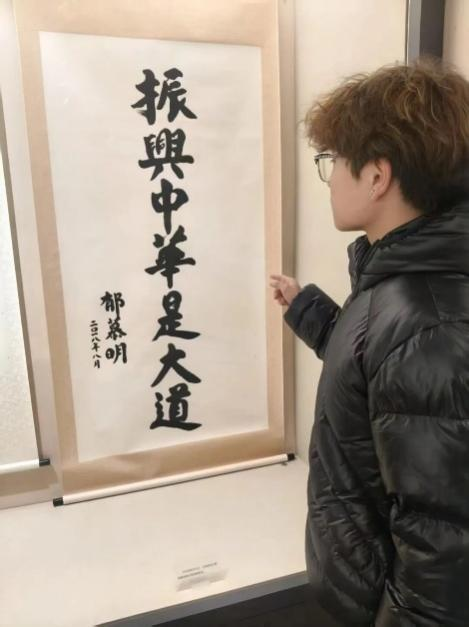 振興中華是大道
郁慕明
二〇一八年八月